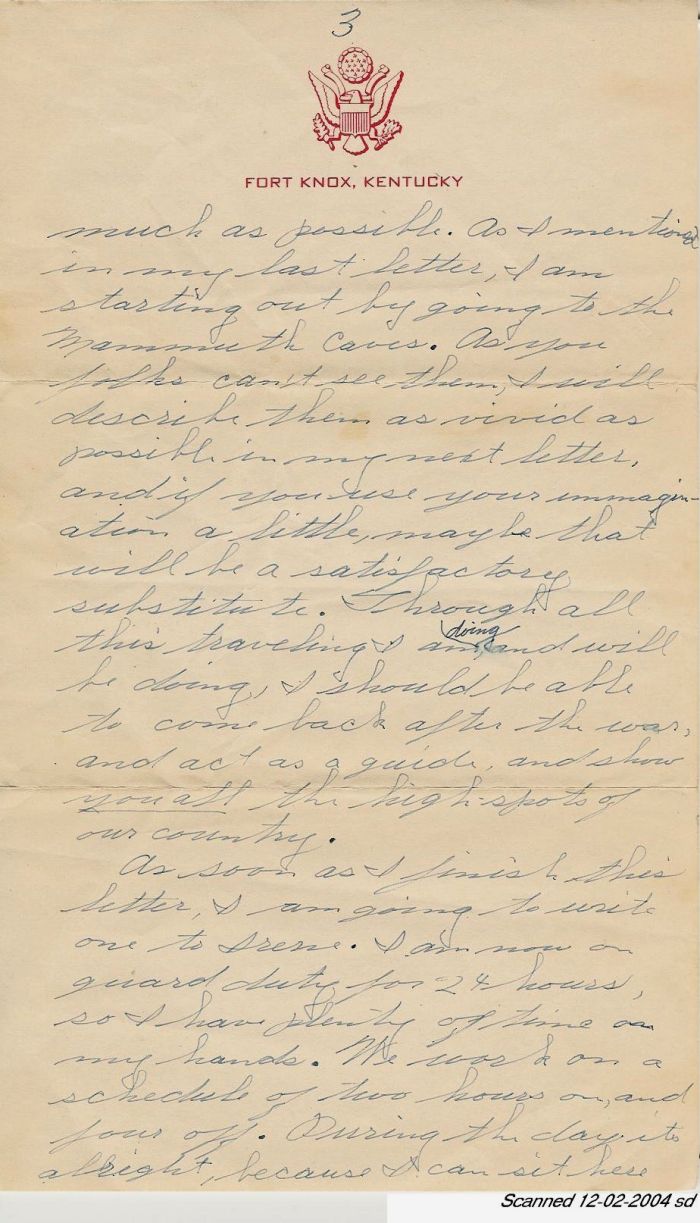 3
FORT KNOX, KENTUCKY
much as possible. As I mentioned
in my last letter, I am
starting out by going to the
Mammuth Caves. As you
folks can't see them, I will
describe them as vivid as
possible in my next letter,
and if you use your immagin-
ation a little, maybe that
will be a satisfactory
substitute. Through all
doing
this traveling I am, and will
be doing, I should be able
to come back after the war,
and act as a guide, and show
you all the high-spots of
our country.
As soon as I finish this
letter, I am going to write
one to Irene. I am now on
guard duty for 24 hours,
so I have plenty of time on
my hands. We work on a
schedule of two hours on, and
four off. During the day its
allright, because I can sit here
Scanned 12-02-2004 sd